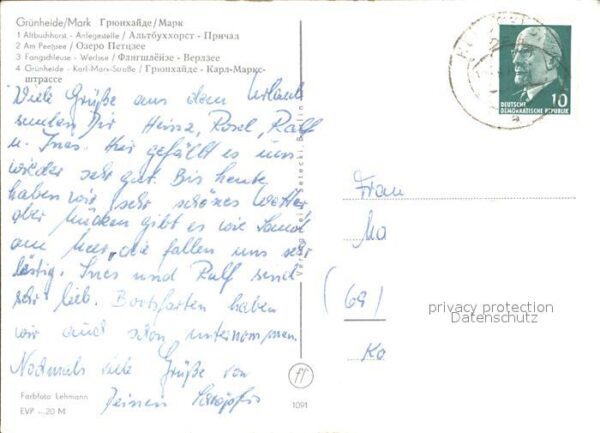 Grünheide/Mark Грюнхайде/Марк
1 Altbuchhorst - Anlegestelle / Альтбуххорст - Причал
2 Am Peetsee / Озеро Петцзее
3 Fangschleuse - Werlsee / Фангшлёйзе - Верлзее
4 Grünheide - Karl-Marx-Straße / Грюнхайде - Карл-Маркс-
штрассе
Viele Grüße aus dem Urlaub
senden Dir Heinz, Rosel, Ralf
u. Ines. Hier gefällt es uns
wieder sehr gut. Bis heute
haben wir sehr schönes Wetter
aber Mücken gibt es wie Sand
am Meer, die fallen uns sehr
lästig. Ines und Ralf sind
sehr lieb. Bootsfarten haben
wir auch schon unternommen.
Nochmals viele Grüße von
Deinen
Farbfoto Lehmann
EVP -.20 M
1091
Berlin
DEUTSCHE
DEMOKRATISCHE REPUBLIK
10
Frau
Ma
(69)
Ko
privacy protection
Datenschutz